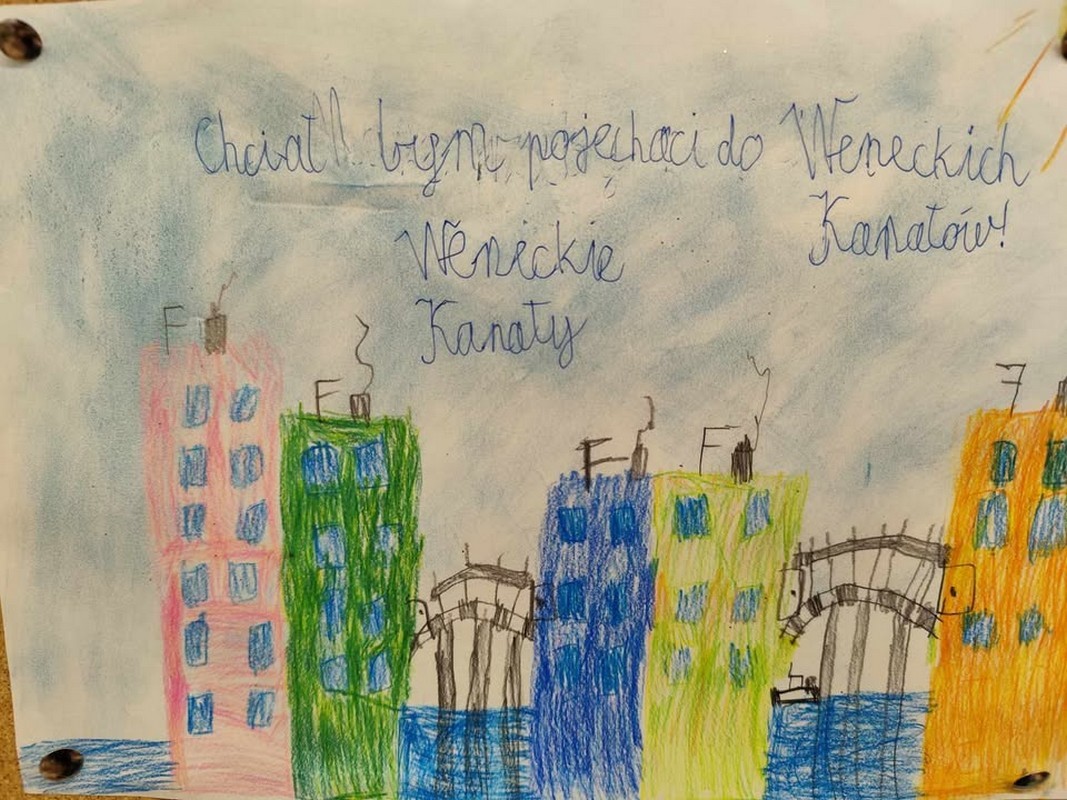 Chciał bym pojechaci do Weneckich
Kanałów!
Weneckie
Kanały